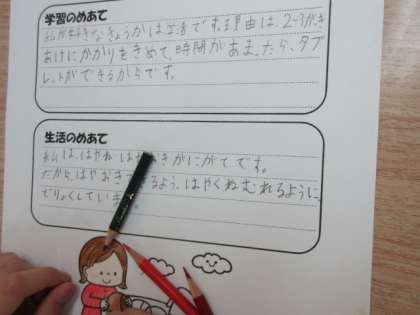 学習のめあて
私が好きなきょうかは生活です。理由は、2つがき
あけにかかりをきめて、時間があまったら、タブ
レットができるからです。
生活のめあて
私は、はやね はや きがにがてです。
だから、はやおき るよう、はやくねむれるように、
どりょくしていき 。